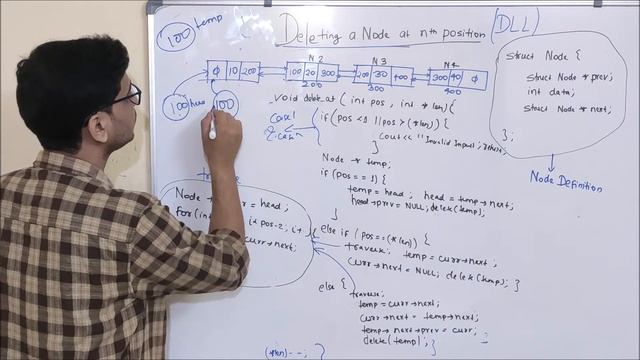 100 temp
Deleting a Node at nth position (DLL)
N2 N3 N4
φ 10 200
100 20 300
200 30 400
300 40 φ
200 300 400
100
100
Struct Node {
Struct Node * prev;
int data;
Struct Node * next;
};
Node Definition
void delete_at ( int pos , int * len) {
Case 1
if (pos < 1 || pos > (*len)) {
cout << "Invalid Input";
}
Node * temp;
if (pos == 1) {
temp = head; head = temp→next;
head→prev = NULL; delete(temp);
}
else if (pos == (*len)) {
traverse; temp = curr→next;
curr→next = NULL; delete(temp); }
else {
traverse;
temp = curr→next;
curr→next = temp→next;
temp→next→prev = curr;
delete(temp);
}
(*len)--; }
Node = head;
for(int i < pos-2; i++) {
curr→next;